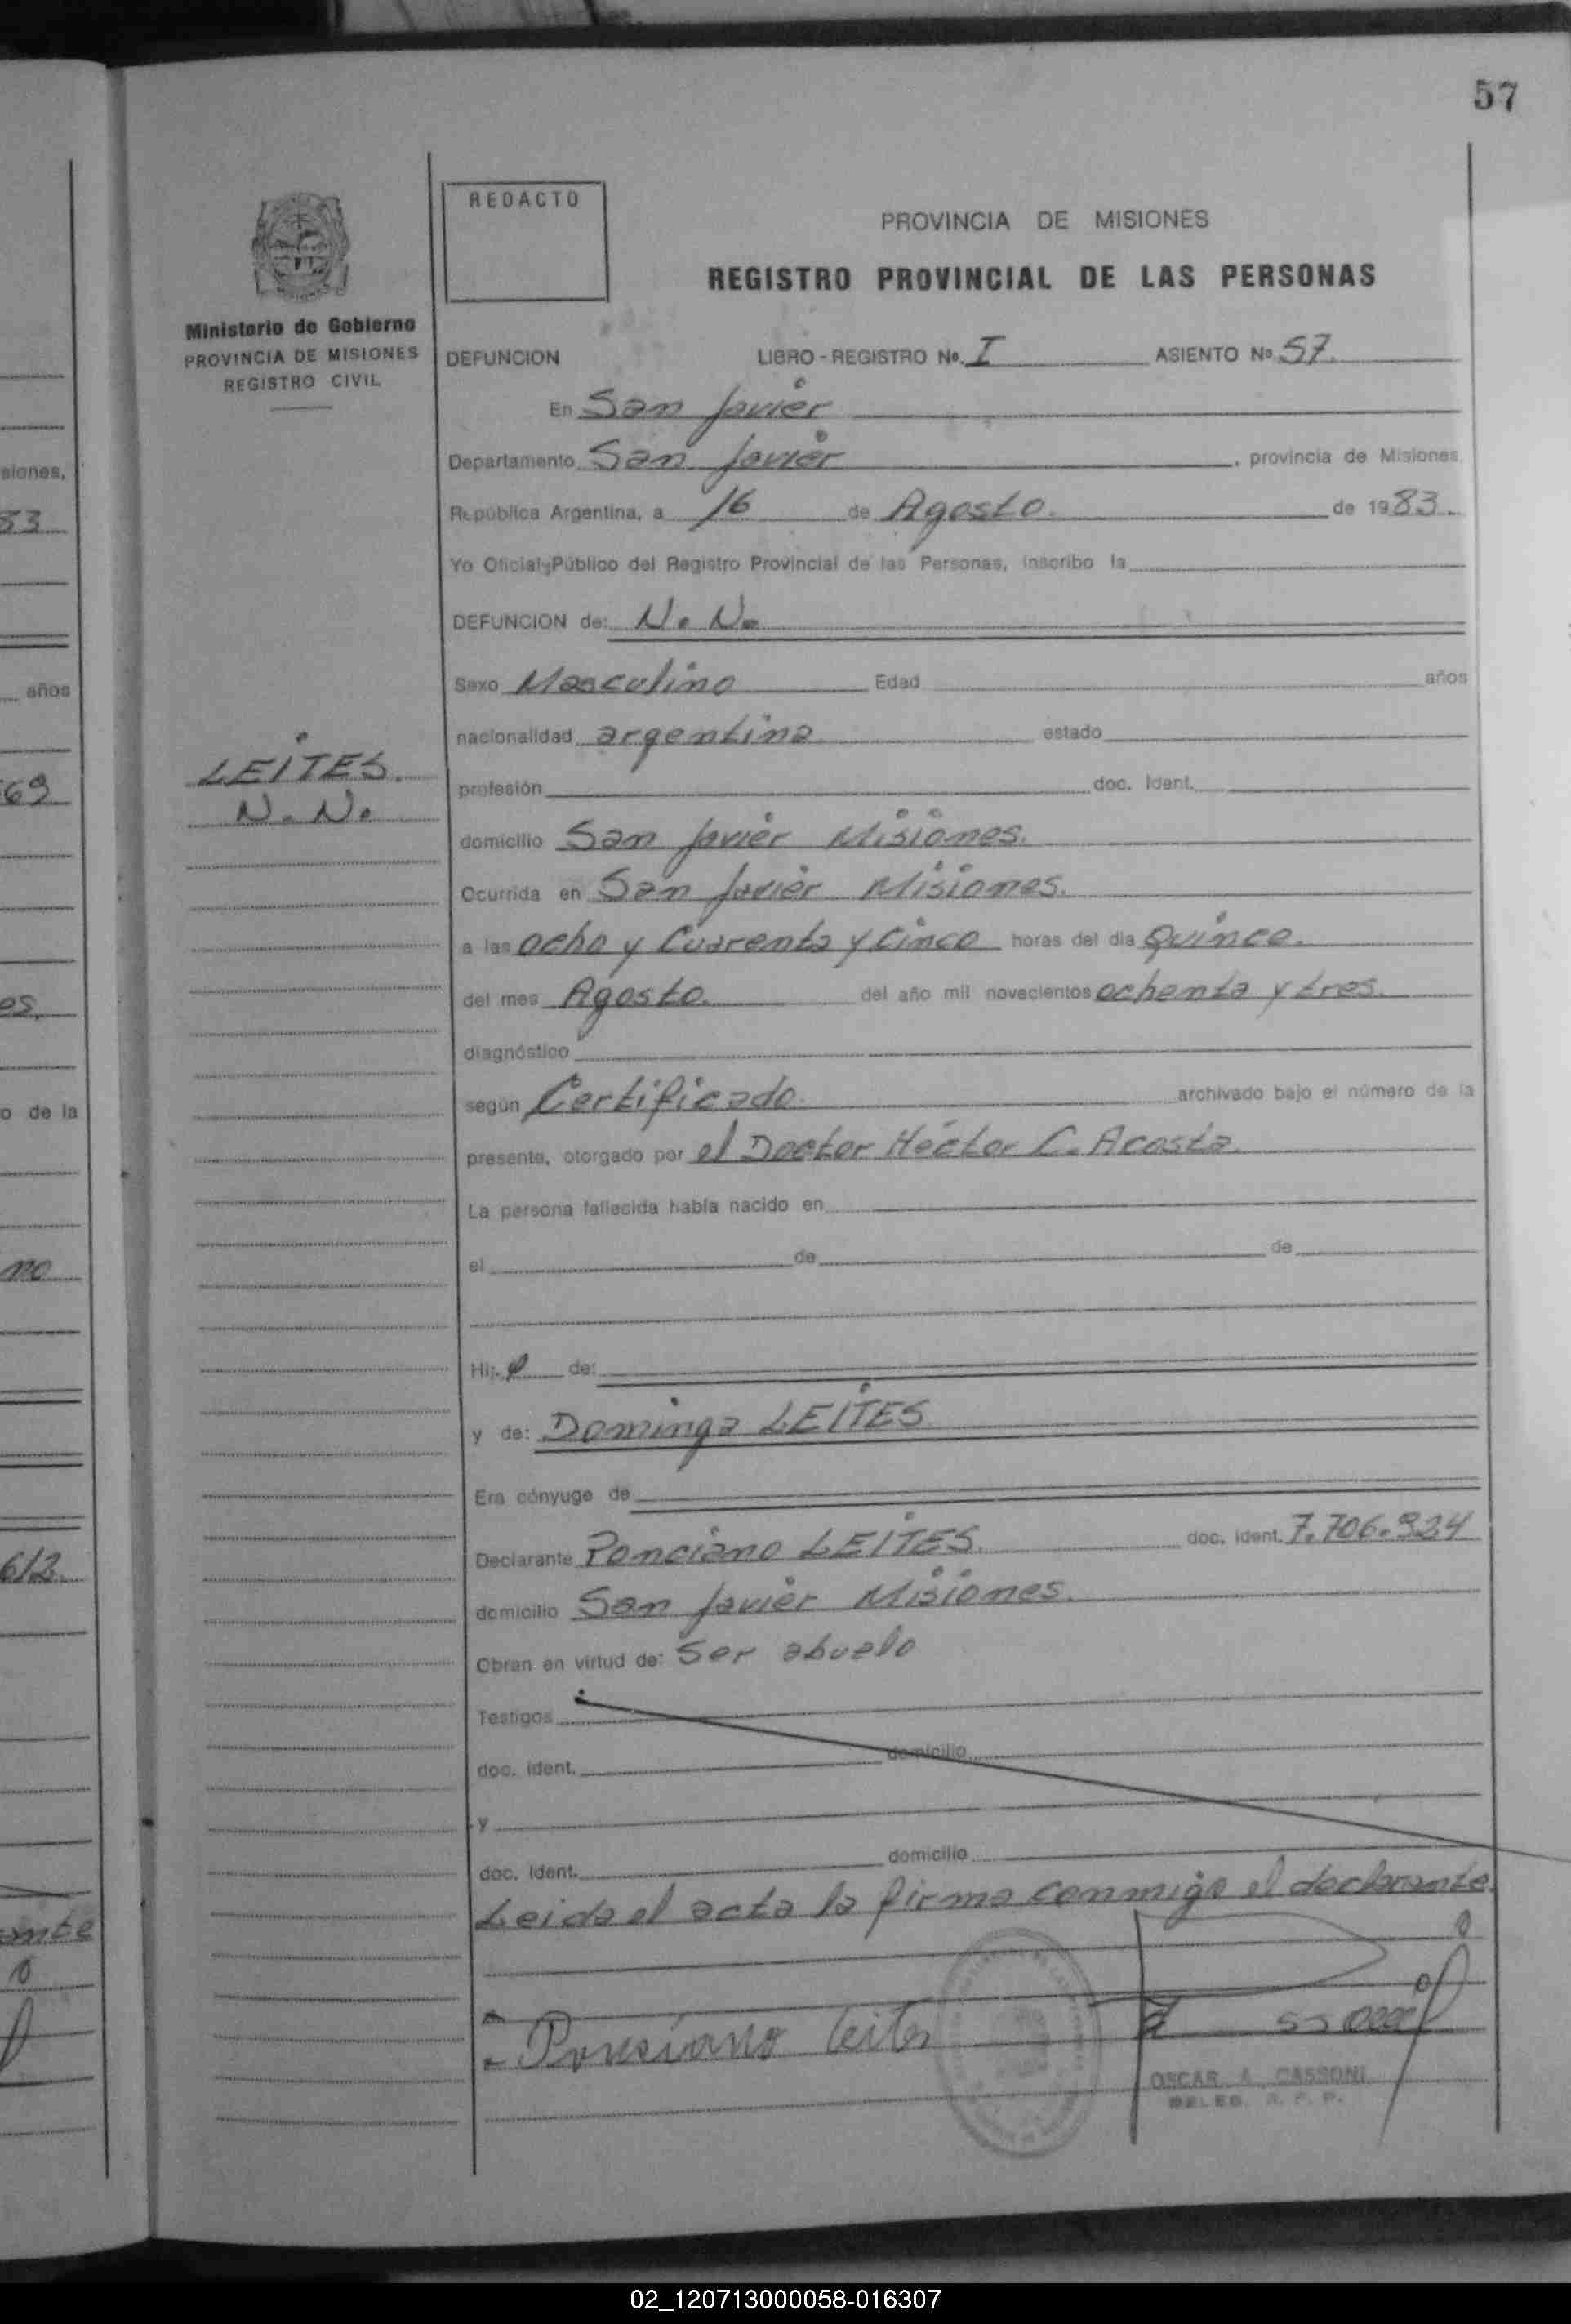 57
REDACTO
PROVINCIA DE MISIONES
REGISTRO PROVINCIAL DE LAS PERSONAS
Ministerio de Gobierno
PROVINCIA DE MISIONES
REGISTRO CIVIL
DEFUNCION LIBRO - REGISTRO No. I ASIENTO No. 57.
En San Javier
Departamento San Javier, provincia de Misiones,
República Argentina, a 16 de Agosto. de 1983.
Yo Oficial Público del Registro Provincial de las Personas, inscribo la
DEFUNCION de: N. N.
Sexo Masculino Edad años
nacionalidad argentina estado
LEITES.
N. N.
profesión doc. ident.
domicilio San Javier Misiones.
Ocurrida en San Javier Misiones.
a las ocho y Cuarenta y Cinco horas del día Quince.
del mes Agosto. del año mil novecientos ochenta y tres.
diagnóstico
según Certificado. archivado bajo el número de la
presente, otorgado por el Doctor Héctor C. Acosta.
La persona fallecida había nacido en
el de de
Hij o de:
y de: Dominga LEITES
Era cónyuge de
Declarante Ponciano LEITES. doc. ident. 7.706.934
domicilio San Javier Misiones.
Obran en virtud de: Ser abuelo
Testigos
doc. ident. domicilio
y
doc. ident. domicilio
Leida el acta la firma conmigo el declarante.
Ponsiano leites
OSCAR A. CASSONI
DELEG. R. P. P.
siones,
83
años
69
es.
o de la
no
612.
ante
02_120713000058-016307